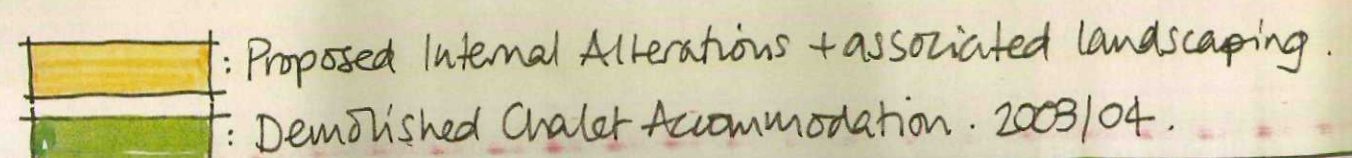 : Proposed Internal Alterations + associated landscaping.
: Demolished Chalet Accommodation. 2003/04.